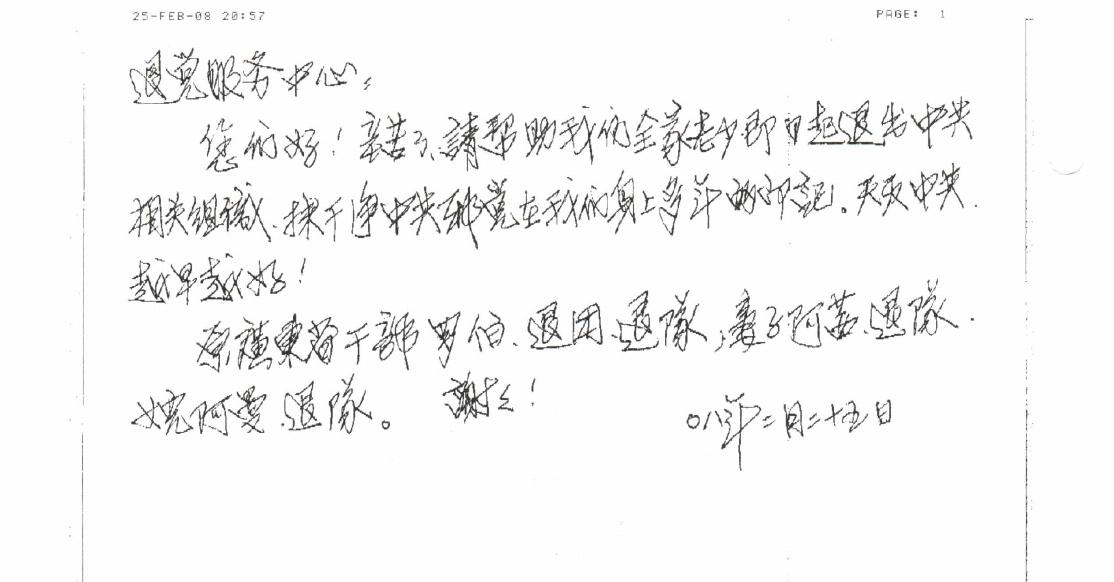 25-FEB-08 20:57 PAGE: 1
退党服务中心：
您们好！辛苦了，請帮助我们全家老少即日起退出中共
相关组織、抹干净中共邪党在我们身上多年的印記。天灭中共
越早越好！
原廣東省干部罗伯、退团、退隊；妻子阿苗、退隊、
女兒阿曼、退隊。 謝謝！
〇八年二月二十五日